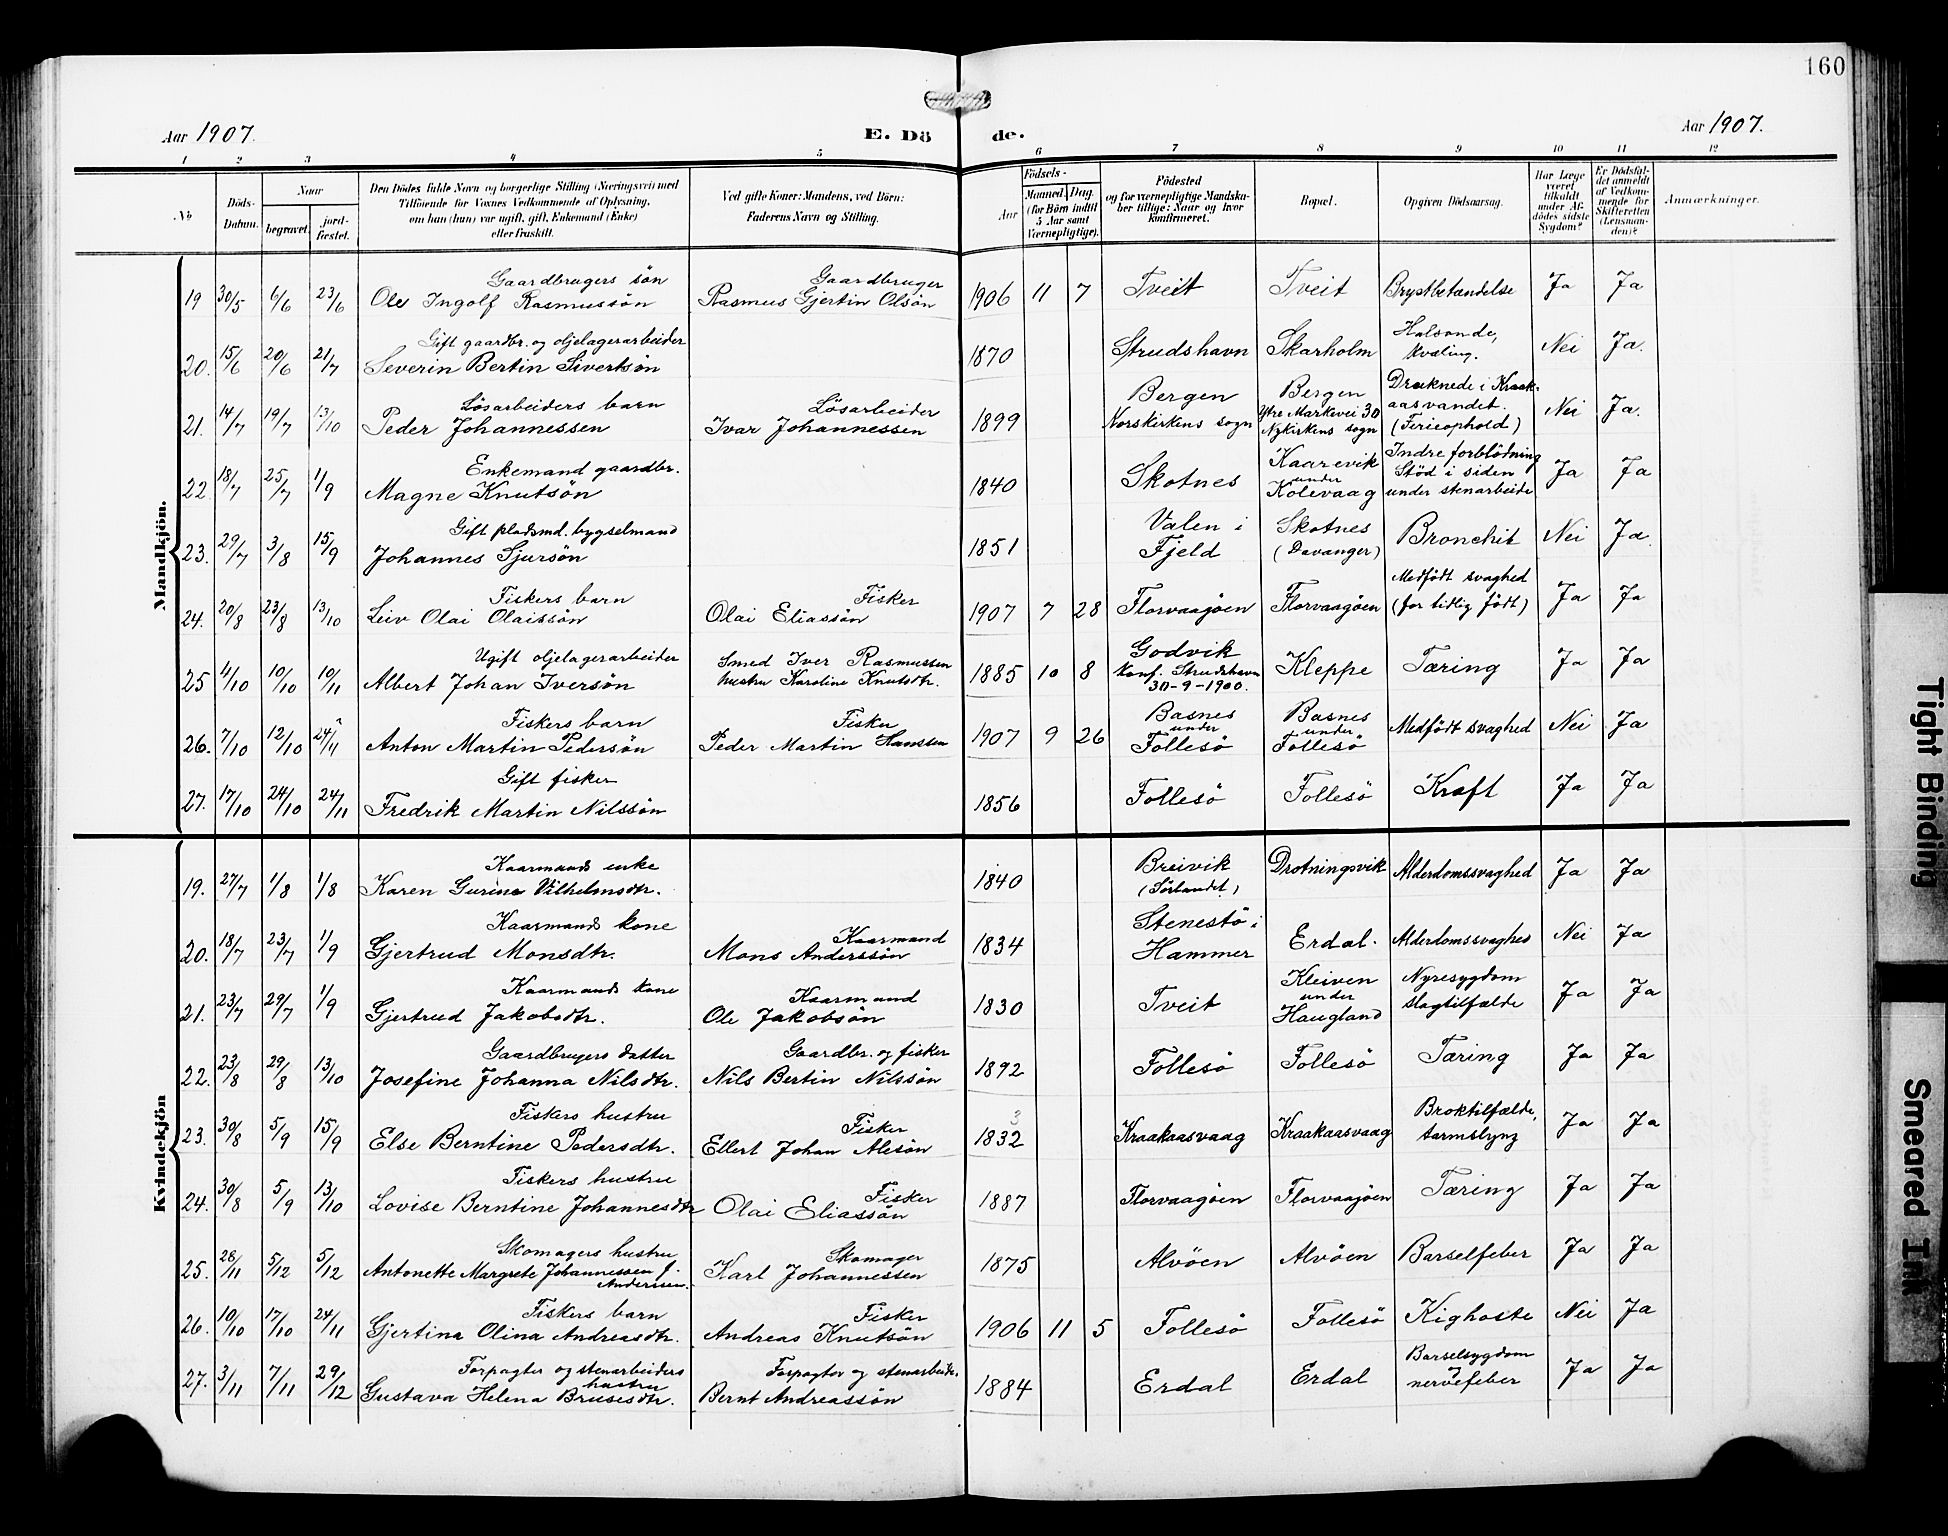 160
Aar 1907.
E. Dö de.
Aar 1907.
1 2 3 4 5 6 7 8 9 10 11 12
No
Döds-Datum.
Naar
begravet.
jord-fæstet.
Den Dödes fulde Navn og borgerlige Stilling (Næringsvei) med
Tilföiende for Voxnes Vedkommende af Oplysning,
om han (hun) var ugift, gift, Enkemand (Enke)
eller fraskilt.
Ved gifte Koner: Mandens, ved Börn:
Faderens Navn og Stilling.
Födsels-
Aar
Maaned. Dag.
(for Börn indtil
5 Aar samt
Værnepligtige).
Födested
og for værnepligtige Mandska-
ber tillige: Naar og hvor
Konfirmeret.
Bopæl.
Opgiven Dödsaarsag.
Har Læge
været
tilkaldt
under Af-
dödes sidste
Sygdom?
Er Dödsfal-
det anmeldt
af Vedkom-
mende for
Skifteretten
(Lensman-
den)?
Anmærkninger.
Mandkjön.
Gaardbrugers sön Gaardbruger
19 30/5 6/6 23/6 Ole Ingolf Rasmussön Rasmus Gjertin Olsön 1906 11 7 Tveit Tveit Brystbetændelse Ja Ja
Gift gaardbr. og oljelagerarbeider Halsonde,
20. 15/6 20/6 21/7 Severin Bertin Sivertsön 1870 Strudshavn Skarholm kvæling. Nei Ja.
Lösarbeiders barn Lösarbeider Bergen Bergen Druknede i Kraak-
21. 14/7 19/7 13/10 Peder Johannessen Ivar Johannessen 1899 Norskirkens sogn Ytre Markevei 30 aasvandet. Nei Ja.
Nykirkens sogn (Ferieophold)
Enkemand gaardbr. Kaarevik Indre forblödning
22. 18/7 25/7 1/9 Magne Knutsön 1840 Skotnes under Stöd i siden Ja Ja
Kolevaag under stenarbeide
Gift pladsmd. bygselmand Valen i Skotnes
23. 29/7 3/8 15/9 Johannes Sjursön 1851 Fjeld (Davanger) Bronchit Nei Ja.
Fiskers barn Fisker Medfödt svaghed
24. 20/8 23/8 13/10 Leiv Olai Olaissön Olai Eliassön 1907 7 28 Florvaagöen Florvaagöen (for tidlig född) Ja Ja
Ugift oljelagerarbeider Smed Iver Rasmussen Godvik
25 4/10 10/10 10/11 Albert Johan Iversön hustru Karoline Knutsdtr. 1885 10 8 Konf. Strudshavn Kleppe Tæring Ja Ja
30-9-1900.
Fiskers barn Fisker Basnes Basnes
26. 7/10 12/10 24/11 Anton Martin Pedersön Peder Martin Hanssen 1907 9 26 under under Medfödt svaghed Nei Ja
Follesö Follesö
Gift fisker
27. 17/10 24/10 24/11 Fredrik Martin Nilssön 1856 Follesö Follesö Kræft Ja Ja
Kvindekjön
Kaarmands enke Breivik
19. 27/7 1/8 1/8 Karen Gurine Vilhelmsdtr. 1840 (Sörlandet) Drotningsvik Alderdomssvaghed Ja Ja
Kaarmands kone Kaarmand Stenestö i
20. 18/7 23/7 1/9 Gjertrud Monsdtr. Mons Anderssön 1834 Hammer Erdal. Alderdomssvaghed Nei Ja
Kaarmands kone Kaarmand Kleiven Nyresygdom
21. 23/7 29/7 1/9 Gjertrud Jakobsdtr. Ole Jakobsön 1830 Tveit under slagtilfælde Ja Ja
Haugland
Gaardbrugers datter Gaardbr. og fisker
22. 23/8 29/8 13/10 Josefine Johanna Nilsdtr. Nils Bertin Nilssön 1892 Follesö Follesö Tæring Ja Ja
Fiskers hustru Fisker 3 Broktilfælde,
23. 30/8 5/9 15/9 Else Berntine Pedersdtr. Ellert Johan Alesön 1832 Kraakaasvaag Kraakaasvaag tarmslyng Ja Ja
Fiskers hustru Fisker
24. 30/8 5/9 13/10 Lovise Berntine Johannesdtr Olai Eliassön 1887 Florvaagöen Florvaagöen Tæring Ja Ja
Skomagers hustru Skomager
25. 28/11 5/12 5/12 Antonette Margrete Johannessen f. Karl Johannessen 1875 Alvöen Alvöen Barselfeber Ja Ja
Andersen.
Fiskers barn Fisker
26. 10/10 17/10 24/11 Gjertina Olina Andreasdtr. Andreas Knutsön 1906 11 5 Follesö Follesö Kighoste Nei Ja
Forpagter og stenarbeiders Forpagter og stenarbeider. Barselsygdom
hustru
27. 3/11 7/11 29/12 Gustava Helena Brusesdtr. Bernt Andreassön 1884 Erdal Erdal nervefeber Ja Ja
Tight Binding
Smeared Ink